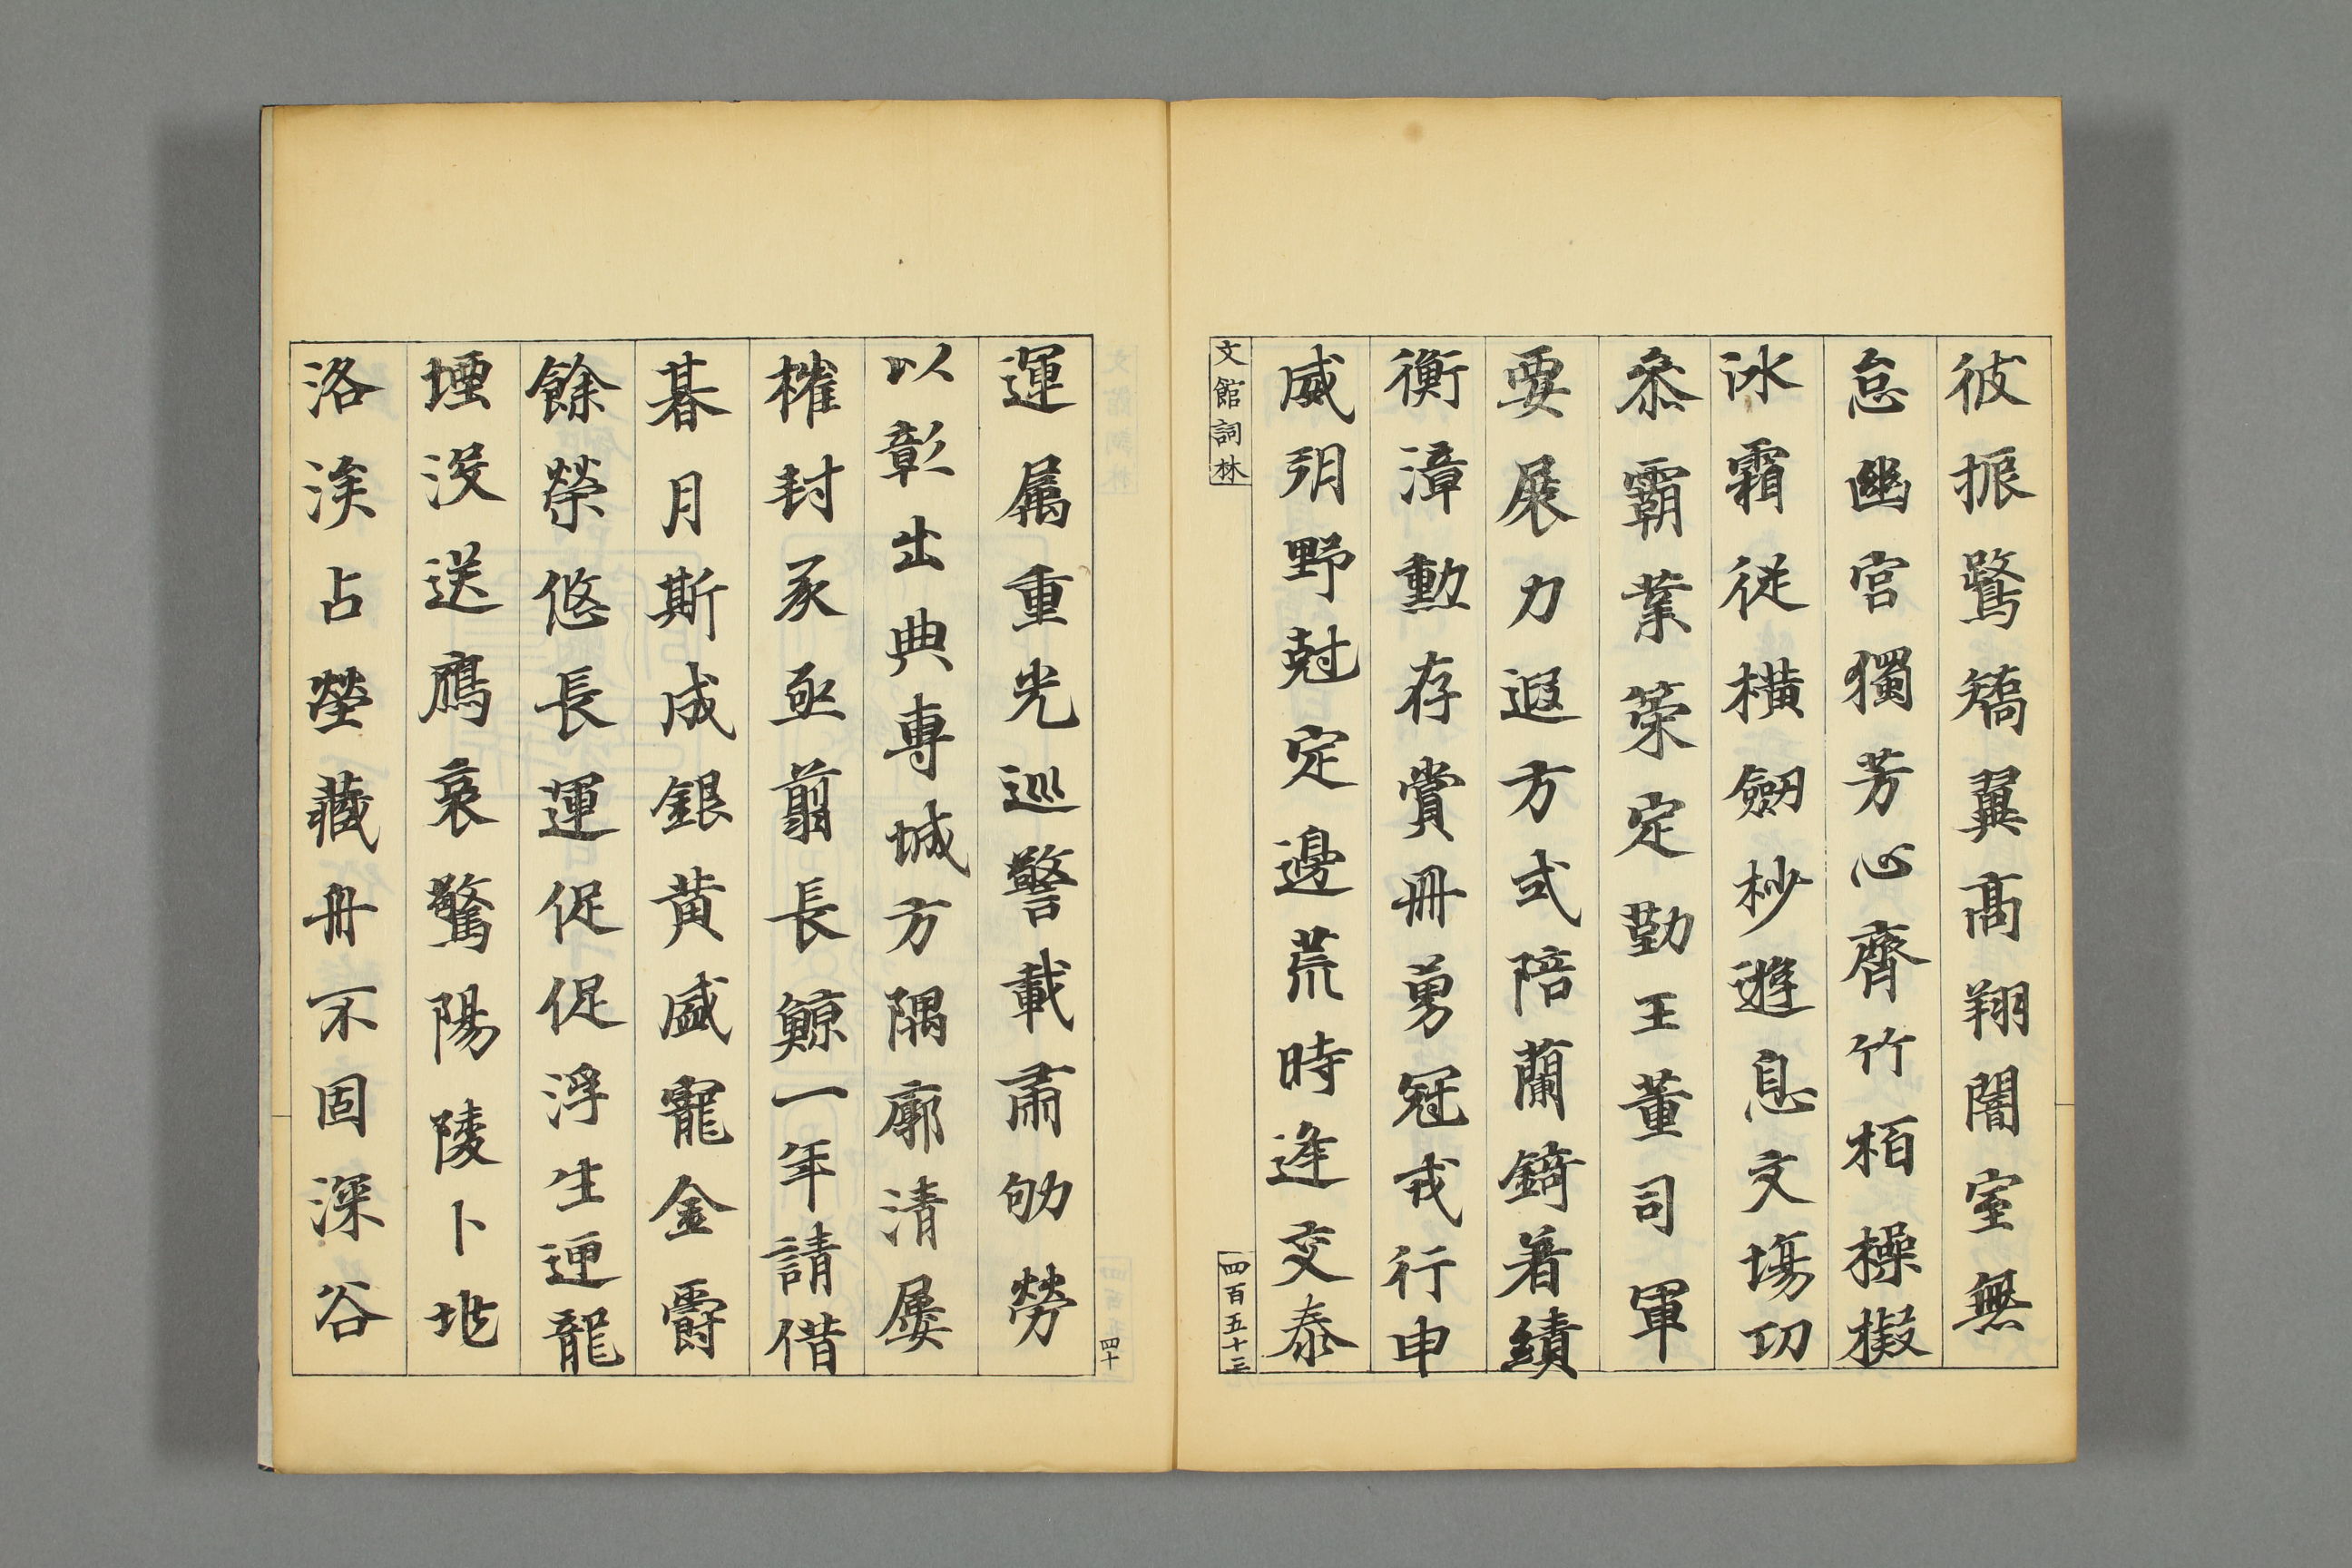 彼振鷺矯翼高翔闇室無
怠幽宮獨芳心齊竹栢操擬
冰霜從橫劒杪遊息文場功
叅霸業策定勤王董司軍
要展力遐方式陪蘭錡著績
衡漳勳存賞冊勇冠戎行申
威朔野尅定邊荒時逢交泰
文館詞林
四百五十三
運属重光巡警載肅劬勞
以彰出典專城方隅廓清屢
摧封豕亟翦長鯨一年請借
朞月斯成銀黃盛寵金爵
餘榮悠長運促促浮生遷龍
堙沒送鴈哀驚陽陵卜地
洛涘占塋藏舟不固深谷
四十